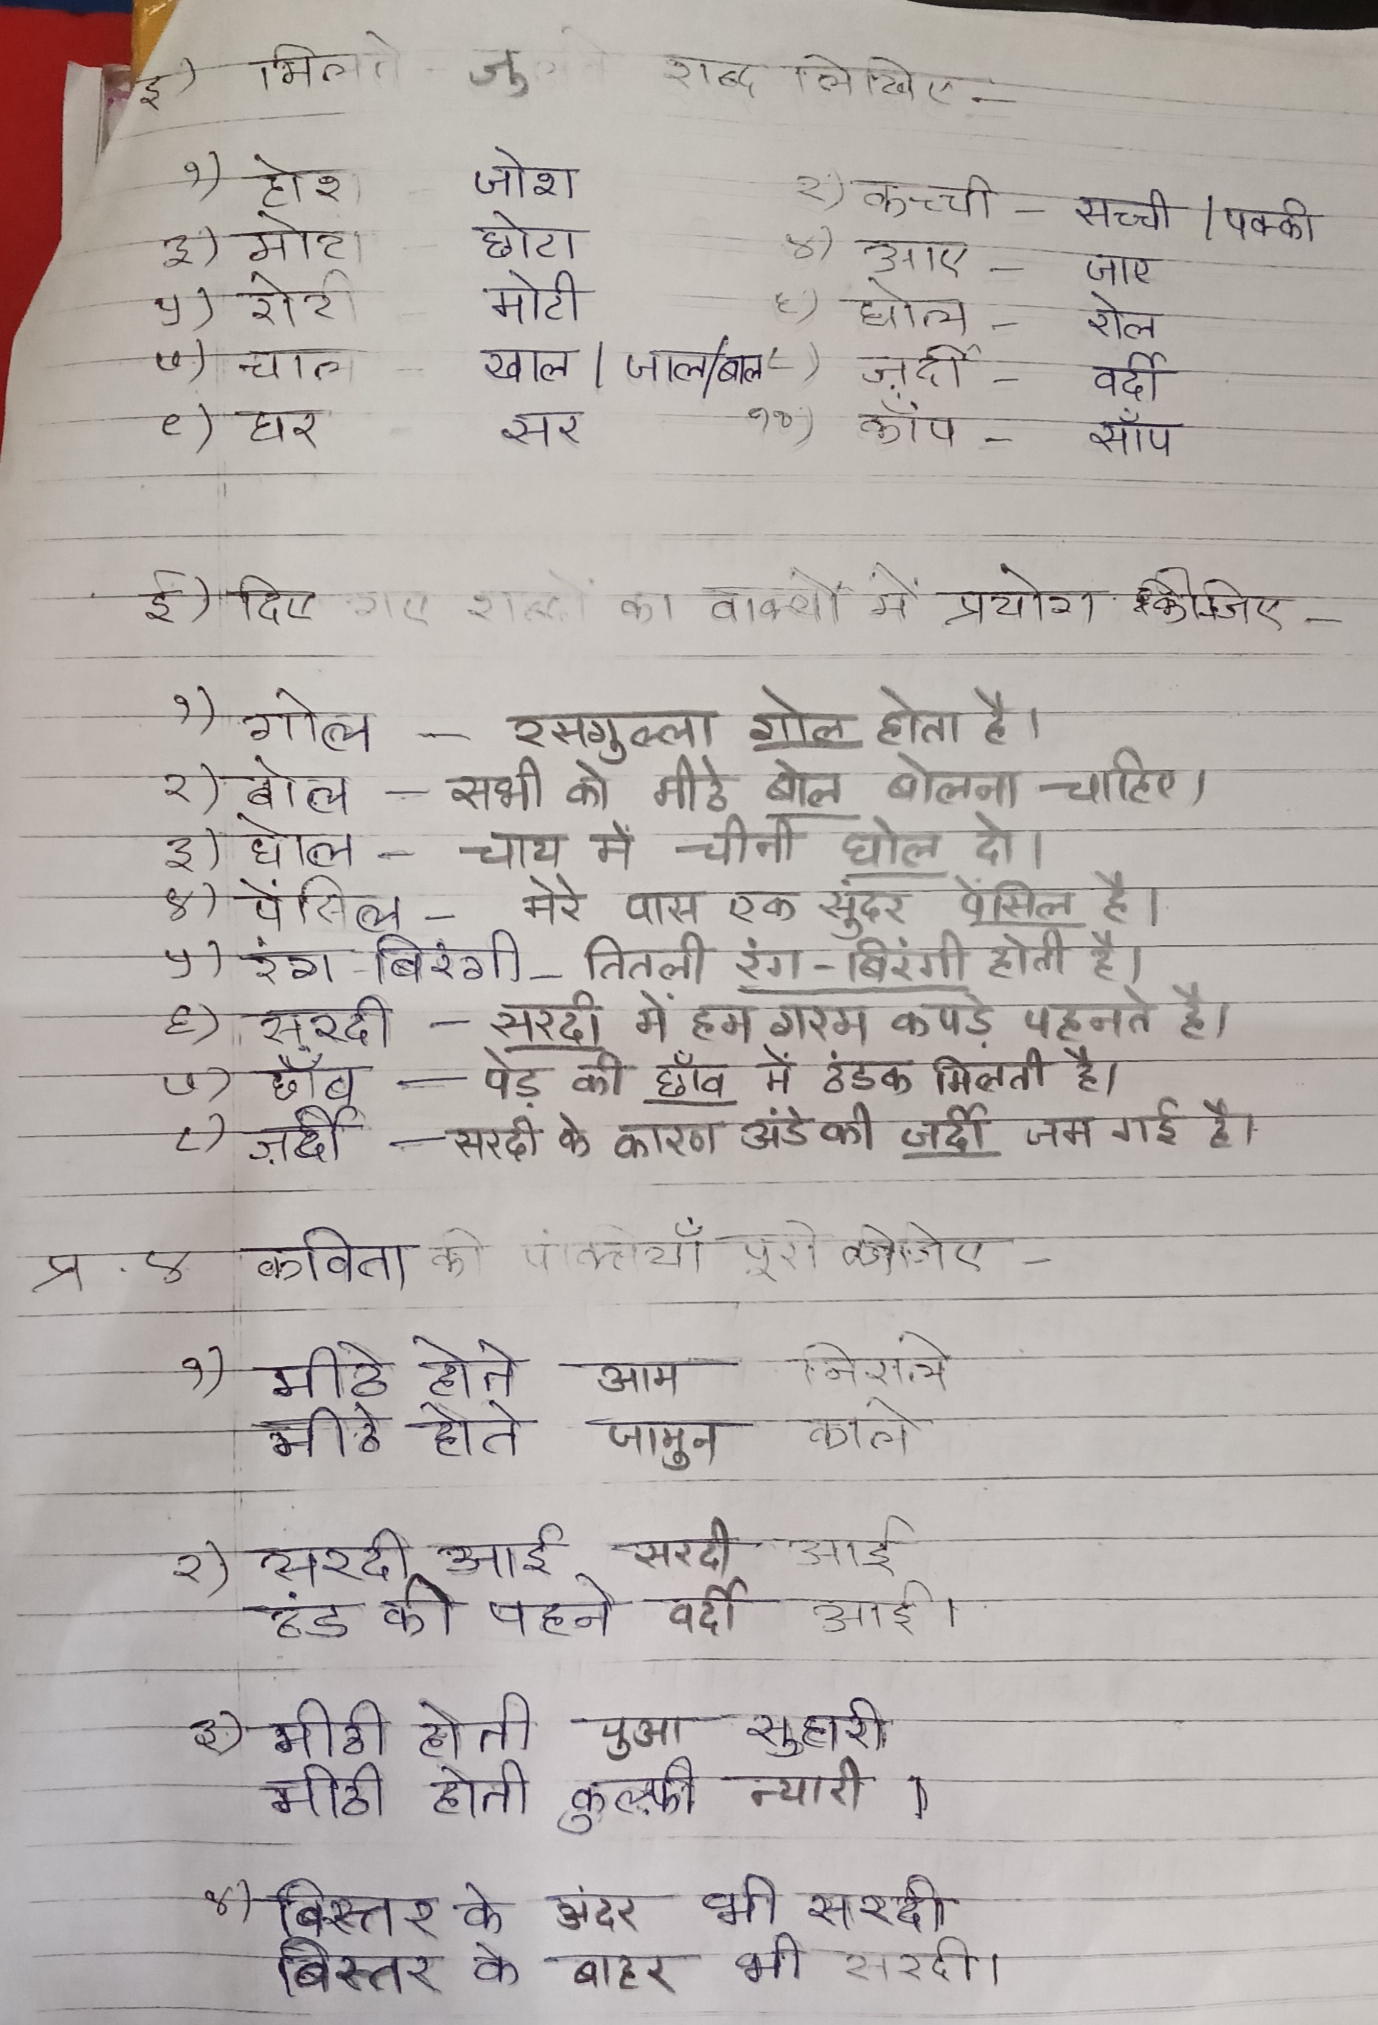 इ) मिलते - जुलते शब्द लिखिए -
१) होश - जोश २) कच्ची - सच्ची / पक्की
३) मोटा - छोटा ४) आए - जाए
५) रोटी मोटी ६) घोल - रोल
७) चाल खाल / जाल/बाल ८) ज़र्दी - वर्दी
९) घर - सर १०) काँप - साँप
ई) दिए गए शब्दों का वाक्यों में प्रयोग कीजिए -
१) गोल - रसगुल्ला गोल होता है।
२) बोल - सभी को मीठे बोल बोलना चाहिए।
३) घोल - चाय में चीनी घोल दो।
४) पेंसिल - मेरे पास एक सुंदर पेंसिल है।
५) रंग-बिरंगी - तितली रंग-बिरंगी होती है।
६) सरदी - सरदी में हम गरम कपड़े पहनते है।
७) छाँव - पेड़ की छाँव में ठंडक मिलती है।
८) ज़र्दी - सरदी के कारण अंडे की जर्दी जम गई है।
प्र . ४ कविता की पंक्तियाँ पूरी कीजिए -
१) मीठे होते आम निराले
मीठे होते जामुन काले
२) सरदी आई सरदी आई
ठंड की पहने वर्दी आई।
३) मीठी होती पुआ सुहारी
मीठी होती कुल्फ़ी न्यारी ।
४) बिस्तर के अंदर भी सरदी
बिस्तर के बाहर भी सरदी।